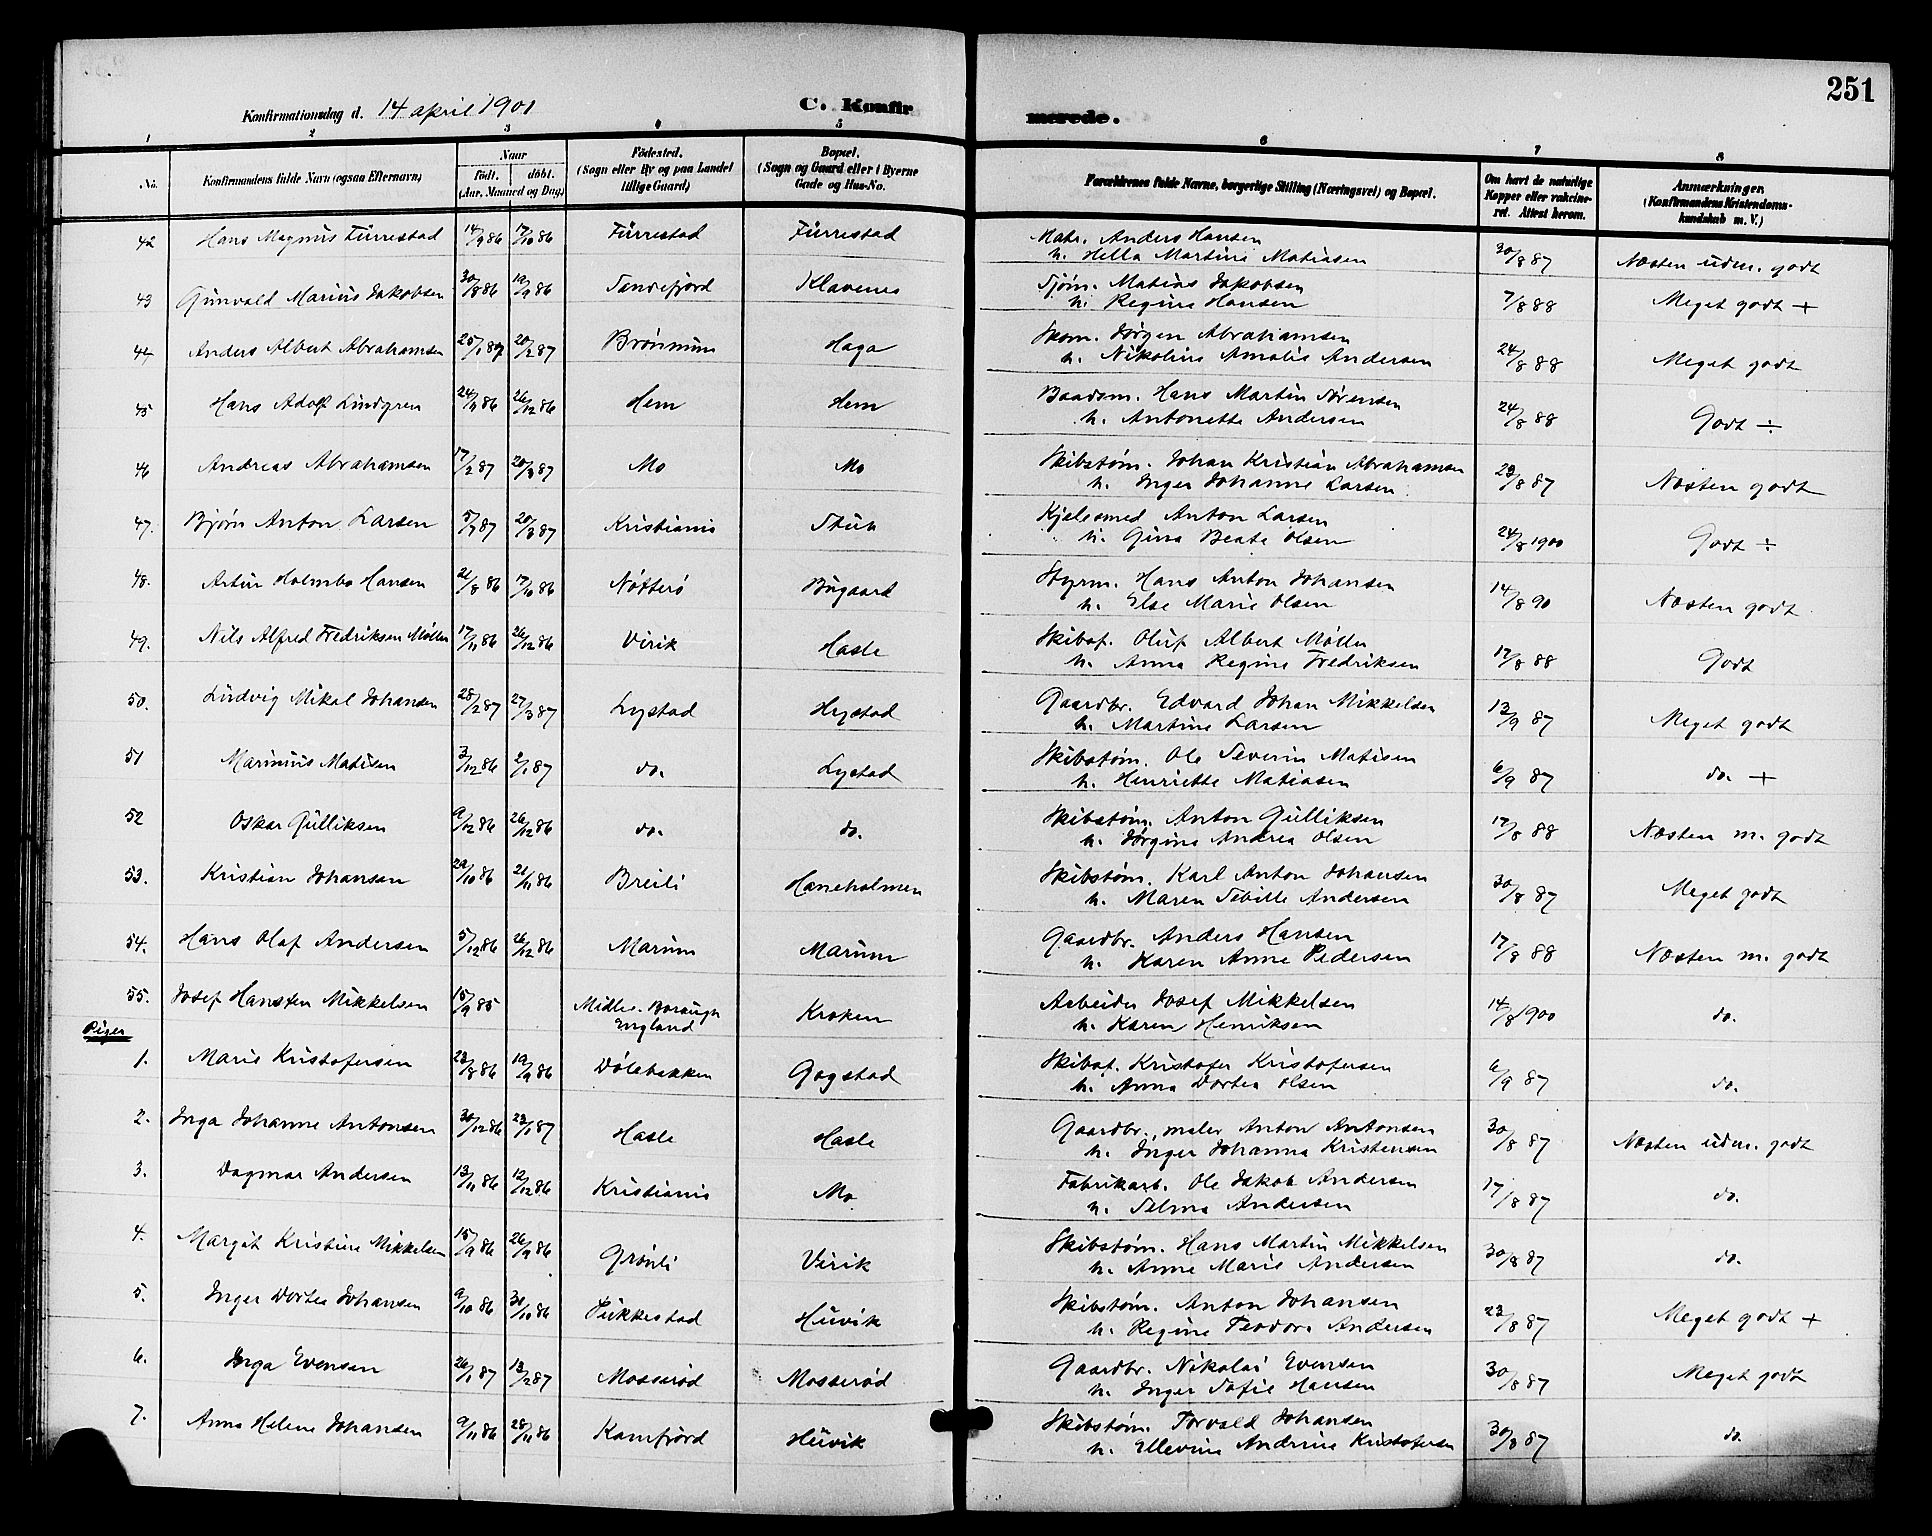 251
Konfirmationsdag d. 14 april 1901
C. Konfir
merede.
1 2 3 4 5 6 7 8
No.
Konfirmandens fulde Navn (ogsaa Efternavn)
Naar
født. døbt.
(Aar, Maaned og Dag)
Fødested.
(Sogn eller By og paa Landet
tillige Gaard)
Bopæl.
(Sogn og Gaard eller i Byerne
Gade og Hus-No.
Forældrenes fulde Navne, borgerlige Stilling (Næringsvei) og Bopæl.
Om havt de naturlige
Kopper eller vakcine-
ret. Attest herom.
Anmærkninger.
(Konfirmandens Kristendoms-
kundskab m. V.)
42 Hans Magnus Furrestad 14/9 86 17/10 86 Furrestad Furrestad Matr. Anders Hansen
h. Hella Martine Matiasen 30/8 87 Næsten udm. godt
43 Gunvald Marius Jakobsen 30/8 86 19/9 86 Sandefjord Klavenes Sjøm. Matias Jakobsen
h. Regine Hansen 7/8 88 Meget godt +
44 Anders Albert Abrahamsen 25/1 87 20/2 87 Brønnum Haga Skom. Jørgen Abrahamsen
h. Nikoline Amalie Andersen 24/8 88 Meget godt
45 Hans Adolf Lindgren 24/9 86 26/12 86 Hem Hem Baadsm. Hans Martin Sørensen
h. Antonette Andersen 24/8 88 Godt ÷
46 Andreas Abrahamsen 17/2 87 20/3 87 Mo Mo Skibstøm. Johan Kristian Abrahamsen
h. Inger Johanne Larsen 23/8 87 Næsten godt
47. Bjørn Anton Larsen 20/3 87 Kristiania Stub Kjelesmed Anton Larsen
h. Gina Beate Olsen 24/8 1900 Godt ÷
48. Artur Holmbo Hansen 21/8 86 17/10 86 Nøtterø Bugaard Styrm. Hans Anton Johansen
h. Else Marie Olsen 14/8 90 Næsten godt
49. Nils Alfred Fredriksen Møller 17/11 86 26/12 86 Virik Hasle Skibsf. Oluf Albert Møller
h. Anna Regine Fredriksen 17/8 88 Godt
50. Ludvig Mikal Johansen 28/2 87 27/3 87 Lystad Hystad Gaardbr. Edvard Johan Mikkelsen
h. Martine Larsen 13/9 87 Meget godt
51 Marinius Matisen 3/12 86 2/1 87 do. Lystad Skibstøm. Ole Severin Matisen
h. Henriette Matiasen 6/9 87 do. +
52 Oskar Gulliksen 9/12 86 26/12 86 do. do. Skibstøm. Anton Gulliksen
h. Jørgine Andrea Olsen 17/8 88 Næsten m. godt
53. Kristian Johansen 29/10 86 21/11 86 Breili Haneholmen Skibstøm. Karl Anton Johansen
h. Maren Sibille Andersen 30/8 87 Meget godt
54. Hans Olaf Andersen 5/12 86 26/12 86 Marum Marum Gaardbr. Anders Hansen
h. Karen Anne Pedersen 17/8 88 Næsten m. godt
55. Josef Hansten Mikkelsen 15/9 85 Midles-Borough
England Kroken Arbeider Josef Mikkelsen
h. Karen Henriksen 14/8 1900 do.
Piger
1. Marie Kristofersen 23/8 86 19/9 86 Dølebakken Gogstad Skibsf. Kristofer Kristofersen
h. Anna Dortea Olsen 6/9 87 do.
2. Inga Johanne Antonsen 30/12 86 23/1 87 Hasle Hasle Gaardbr., maler Anton Antonsen
h. Inger Johanna Kristensen 30/8 87 Næsten udm. godt
3. Dagmar Andersen 13/11 86 12/12 86 Kristiania Mo Fabrikarb. Ole Jakob Andersen
h. Selma Andersen 17/8 87 do.
4. Margit Kristine Mikkelsen 15/9 86 26/9 86 Grønli Virik Skibstøm. Hans Martin Mikkelsen
h. Anne Marie Andersen 30/8 87 do.
5. Inger Dortea Johansen 9/10 86 30/10 86 Pukkestad Huvik Skibstøm. Anton Johansen
h. Regine Teodora Andersen 23/8 87 Meget godt +
6. Inga Evensen 26/1 87 13/2 87 Mosserød Mosserød Gaardbr. Nikolai Evensen
h. Inger Sofie Hansen 30/8 87 Meget godt
7. Anna Helene Johansen 9/11 86 28/11 86 Kamfjord Huvik Skibstøm. Torvald Johansen
h. Ellevine Andrine Kristofersen 30/8 87 do.